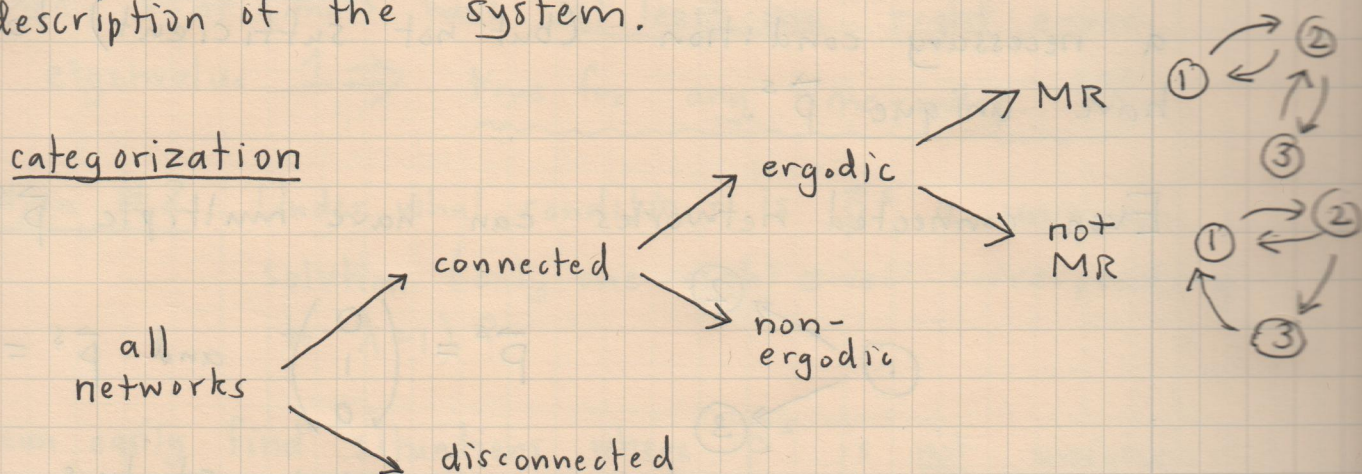 description of the system.
categorization
all
networks
connected
disconnected
ergodic
non-
ergodic
MR
not
MR
1
2
3
1
2
3